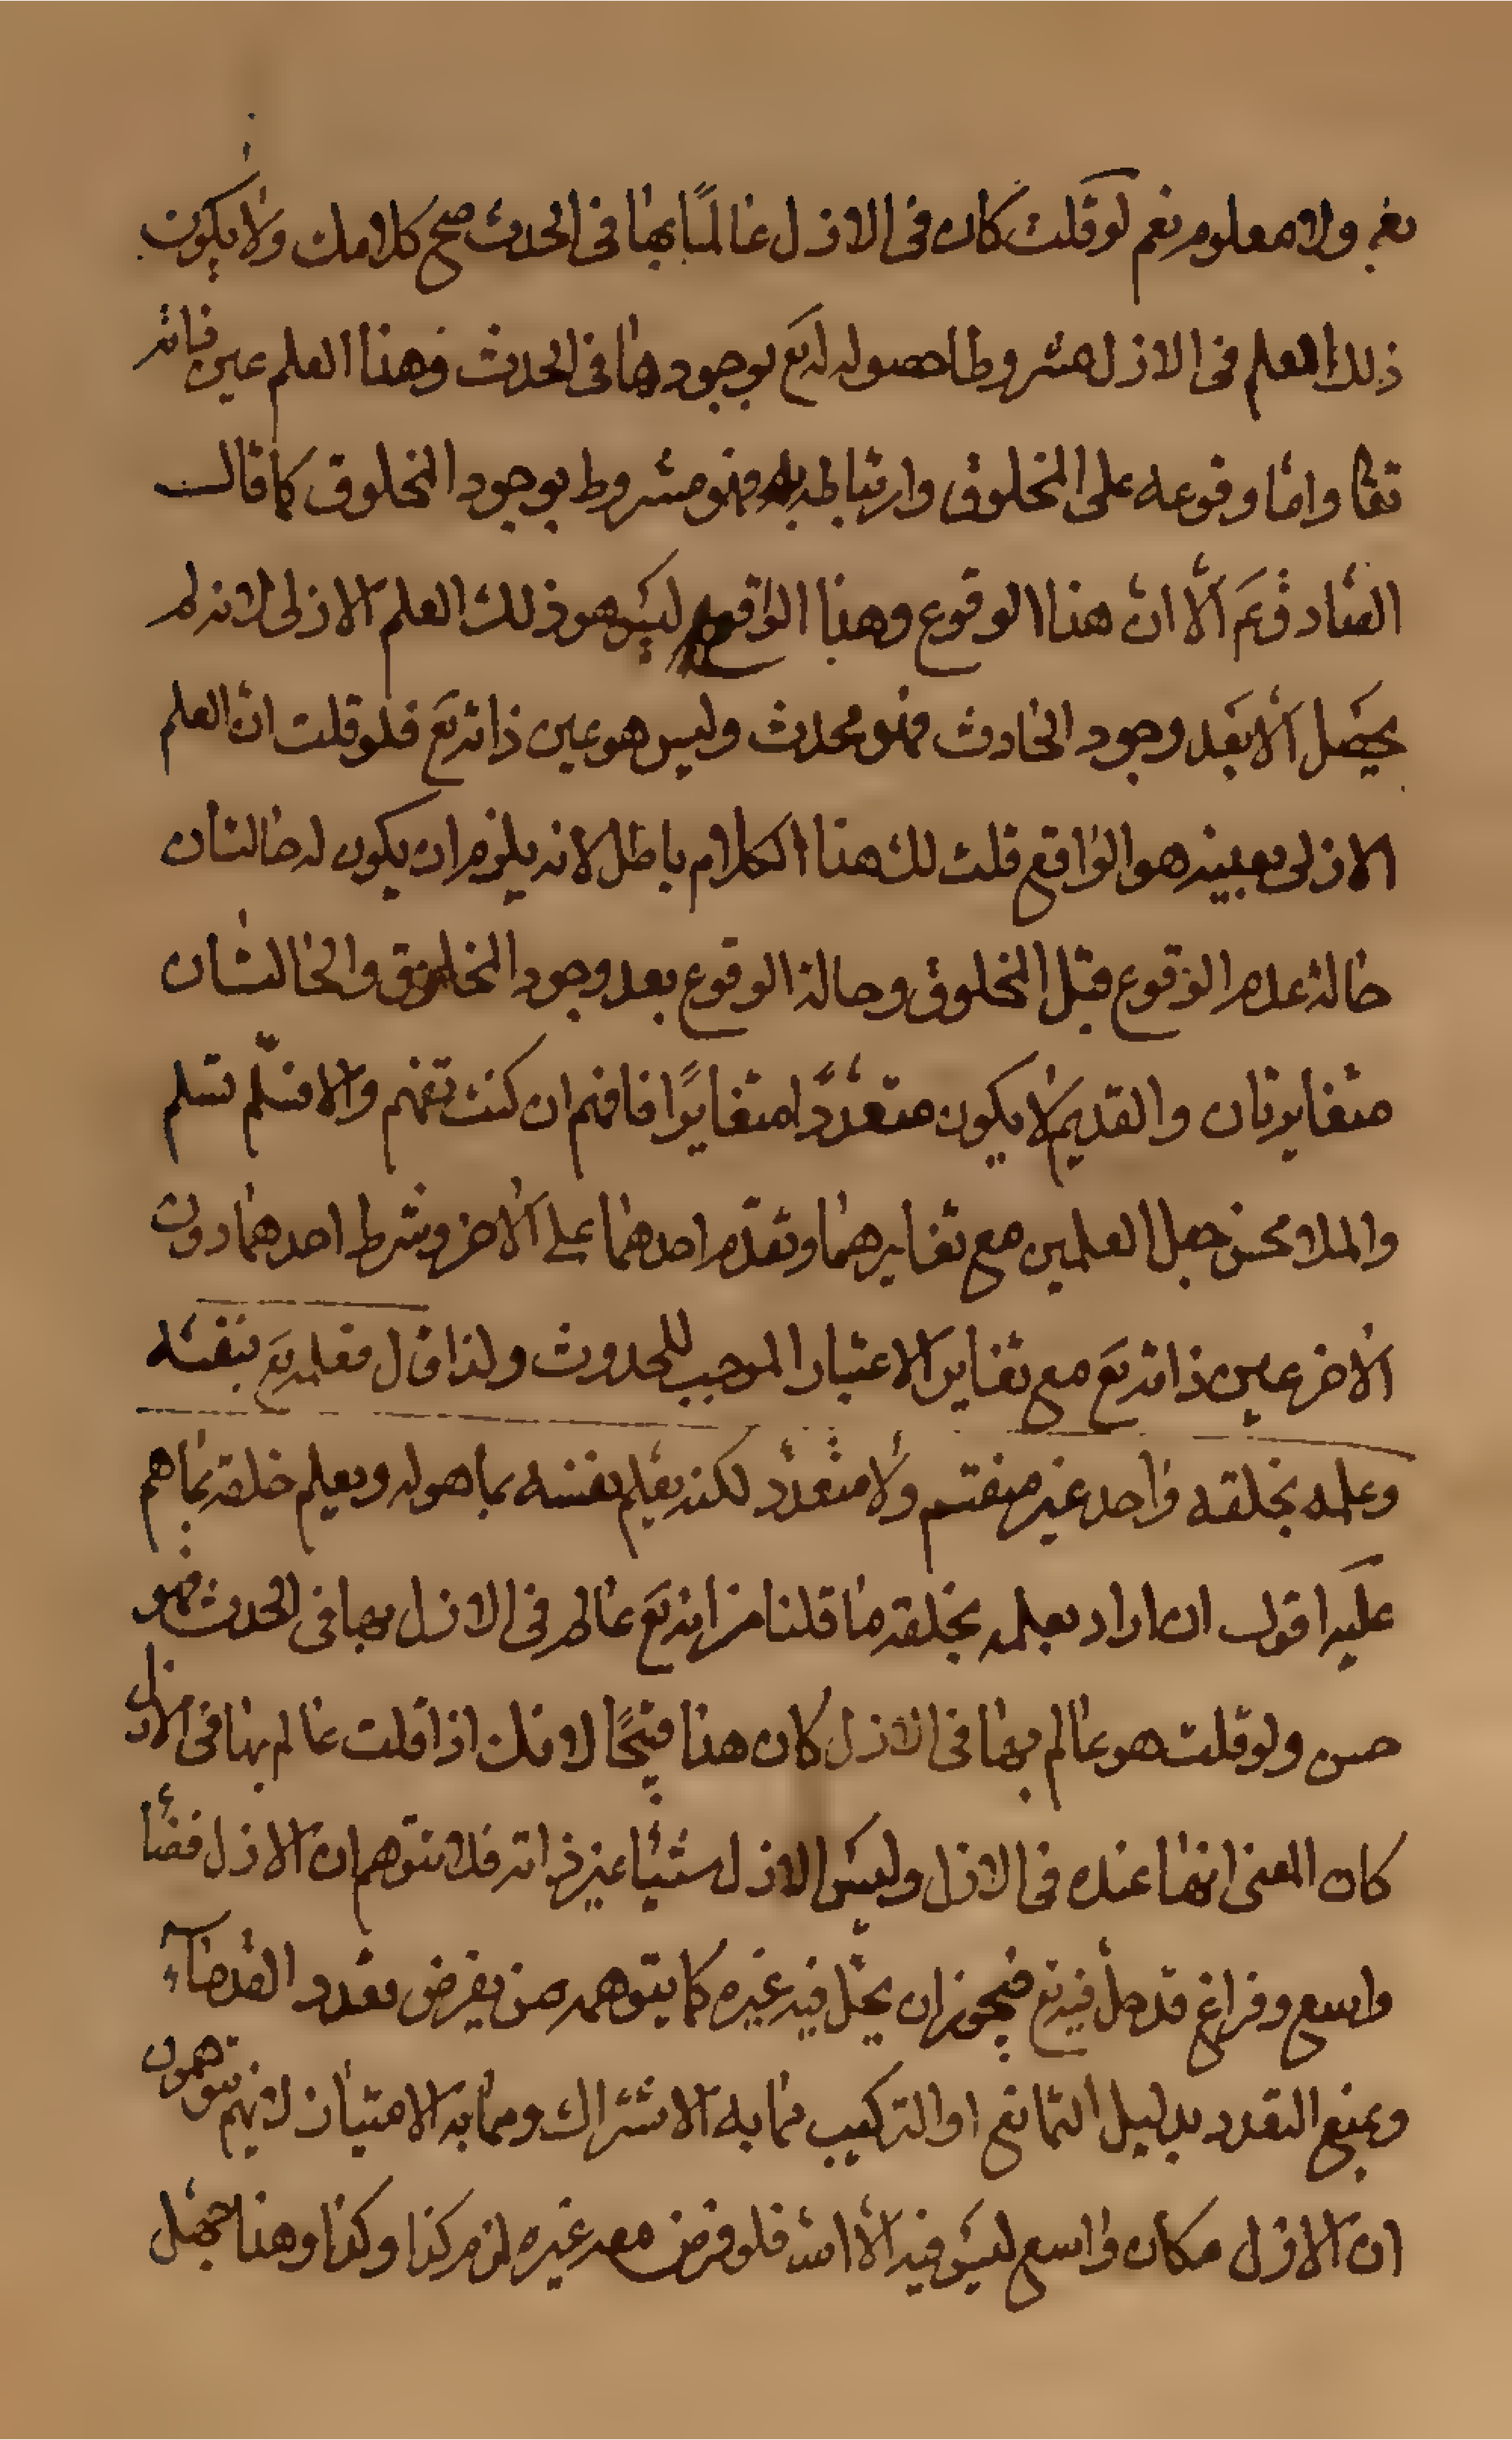 بغير ولا معلوم نعم لو قلت كان فى الازل عالمًا بها فى الحدث صح كلامك ولا يكون
ذلك العلم فى الازل مشروطا حصوله له تع بوجودها فى الحدث وهذا العلم عين ذاته
تعا واما وقوعه على المخلوق وارتباطه به فهو مشروط بوجود المخلوق كما قال
الصادق عَ الّا ان هذا الوقوع وهذا الواقع ليس هو ذلك العلم الازلى لانه لم
يحصل الّا بعد وجود الحادث فهو محدث وليس هو عين ذاته تع فلو قلت ان العلم
الازلى بعينه هو الواقع قلت لك هذا الكلام باطل لانه يلزم ان يكون له حالتان
حالة عدم الوقوع قبل المخلوق وحالة الوقوع بعد وجود المخلوق والحالتان
متغايرتان والقديم لا يكون متعدّدًا متغايرًا فافهم ان كنت تفهم والا فسلّم تسلم
والملا محسن جعل العلمين مع تغايرهما وتقدم احدهما على الاخر وشرط احدهما دون
الاخر عين ذاته تع مع تغاير الاعتبار الموجب للحدوث ولذا قال فعلمه تع بنفسه
وعلمه بخلقه واحد غير منقسم ولا متعدد لكنه يعلم نفسه بما هو له ويعلم خلقه بما هم
عليه اقول ان اراد بعلمه بخلقه ما قلنا من انه تع عالم فى الازل بها فى الحدث فهو
حسن ولو قلت هو عالم بها فى الازل كان هذا قبيحًا لانك اذا قلت عالم بها فى الازل
كان المعنى انها عنده فى الازل وليس الازل شيئا غير ذاته فلا تتوهم ان الازل فضاء
واسع وفراغ قد حل فيه تع فيجوز ان يحل فيه غيره كما يتوهمه من يفرض تعدد القدماء
ويمنع التعدد بدليل التمانع او التركيب مما به الاشتراك ومما به الامتياز لانهم يتوهمون
ان الازل مكان واسع ليس فيه الا الله فلو فرض معه غيره لزم كذا وكذا وهذا جهل